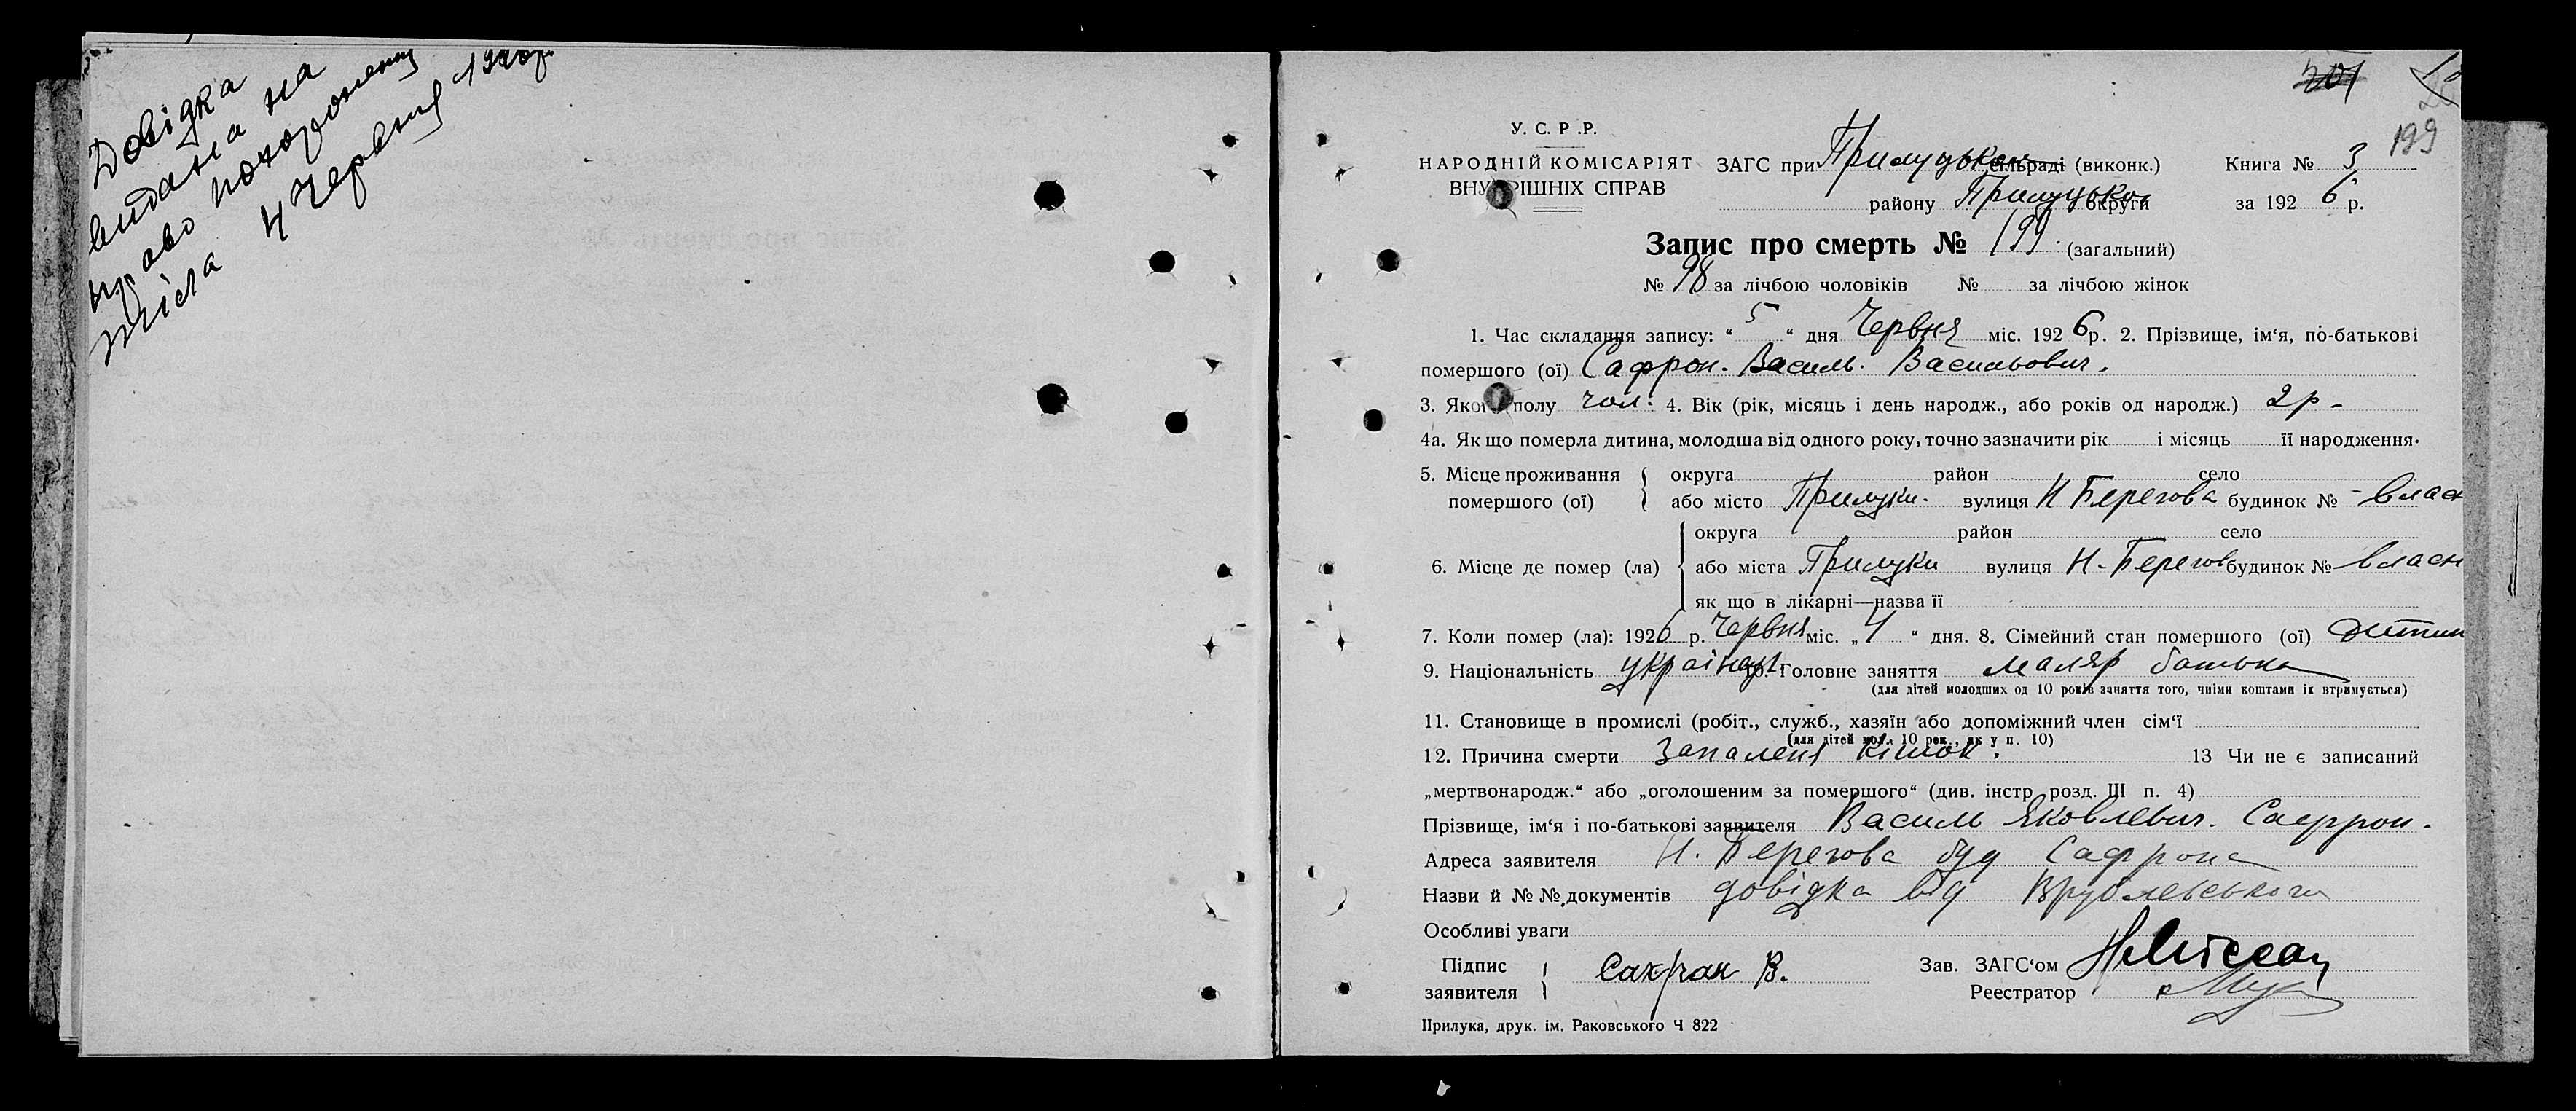 Довідка
видана на
право похоронення
тіла 4 Червня 1926р.
201
199
У. С. Р .Р.
НАРОДНІЙ КОМІСАРІЯТ
ВНУТРІШНІХ СПРАВ
ЗАГС при Прилуцьком сільраді (виконк.) Книга № 3
району Прилуцької округи за 192 6 р.
Запис про смерть № 199. (загальний)
№ 98 за лічбою чоловіків № за лічбою жінок
1. Час складання запису: “ 5 “ дня Червня міс. 192 6 р. 2. Прізвище, ім‘я, по-батькові
помершого (ої) Сафрон. Василь. Васильович.
3. Якого полу чол. 4. Вік (рік, місяць і день народж., або років од народж.) 2 р -
4а. Як що померла дитина, молодша від одного року, точно зазначити рік і місяць її народження.
5. Місце проживання округа район село
помершого (ої) або місто Прилуки. вулиця Н Берегова будинок № - власн
округа район село
6. Місце де помер (ла) або міста Прилуки вулиця Н. Берегов будинок № власн
як що в лікарні—назва її
7. Коли помер (ла): 192 6 р. Червня міс. „ 4 “ дня. 8. Сімейний стан помершого (ої) дитин
9. Національність україн. 10. Головне заняття маляр батько
(для дітей молодших од 10 років заняття того, чиїми коштами їх втримується)
11. Становище в промислі (робіт., служб., хазяїн або допоміжний член сім‘ї
(для дітей мол. 10 рок., як у п. 10)
12. Причина смерти Запаленя кішок. 13 Чи не є записаний
„мертвонародж.“ або „оголошеним за помершого“ (див. інстр розд. III п. 4)
Прізвище, ім‘я і по-батькові заявителя Василь Яковлевич. Сафрон.
Адреса заявителя Н. Берегова буд Сафрона
Назви й № № документів довідка від Врублевського
Особливі уваги
Підпис
заявителя Сахрон В.
Зав. ЗАГС‘ом
Реестратор
Прилука, друк. ім. Раковського Ч 822